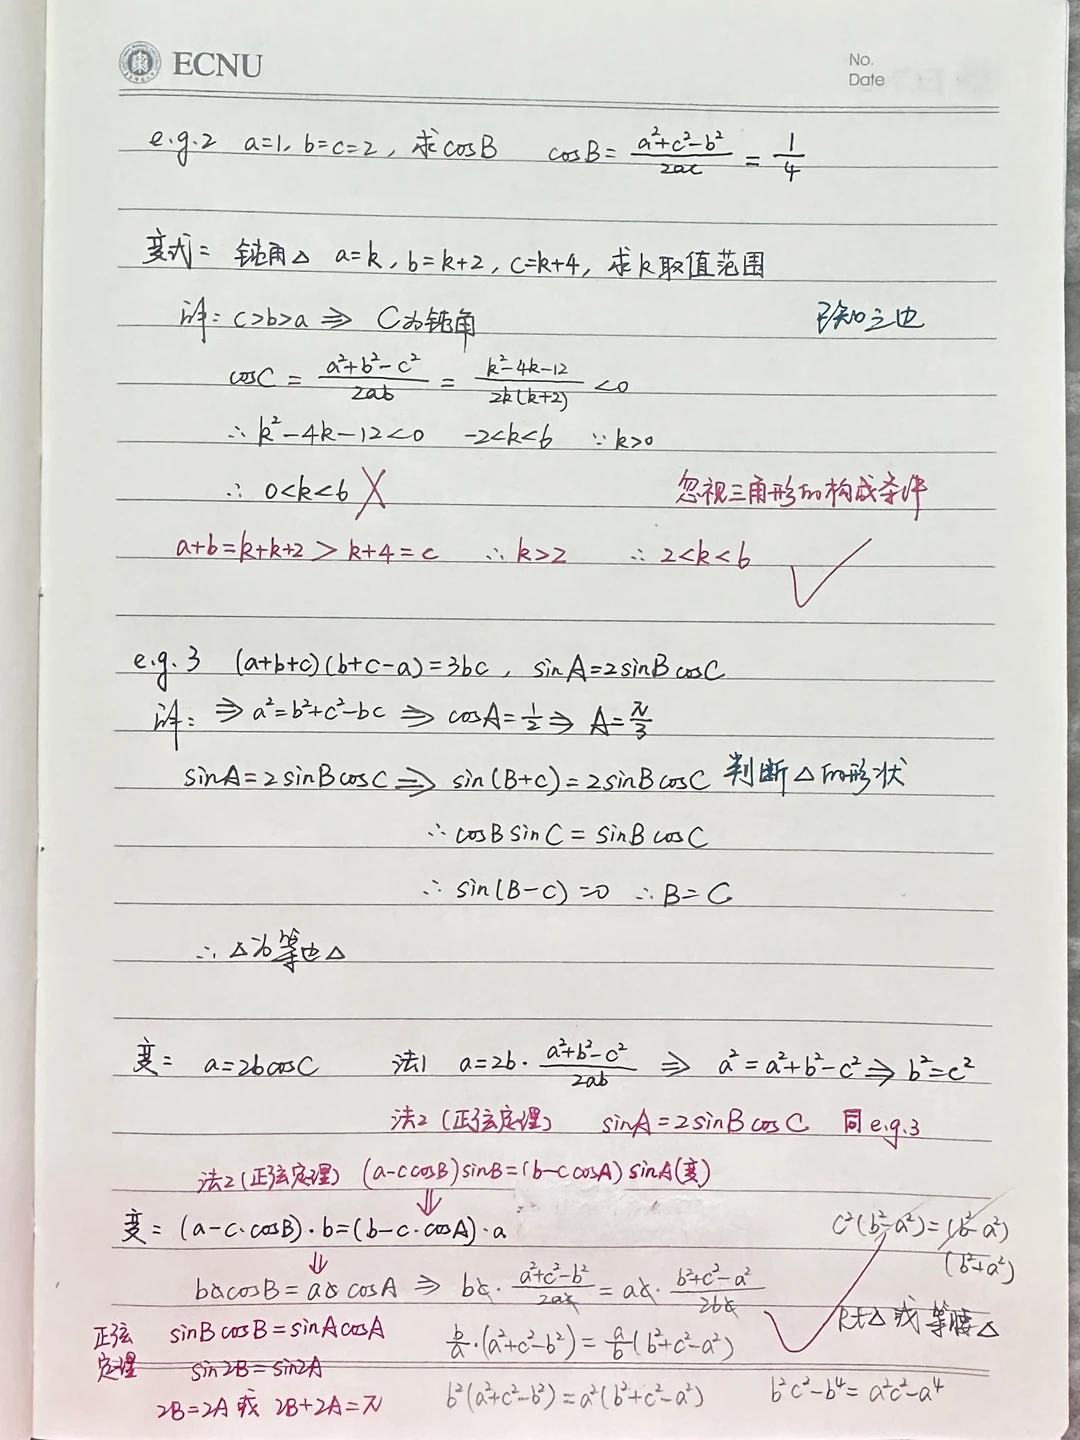 ECNU
No.
Date
e.g.2 a=1, b=c=2, 求cosB cosB= (a²+c²-b²)/2ac = 1/4
变式= 钝角△ a=k, b=k+2, c=k+4, 求k取值范围
详: c>b>a ⇒ C为钝角 已知三边
cosC = (a²+b²-c²)/2ab = (k²-4k-12)/2k(k+2) <0
∴ k²-4k-12<0 -2<k<6 ∵k>0
∴ 0<k<6 ╳ 忽视三角形的构成条件
a+b=k+k+2 > k+4=c ∴k>2 ∴ 2<k<6
e.g.3 (a+b+c)(b+c-a)=3bc, sinA=2sinBcosC
详: ⇒ a²=b²+c²-bc ⇒ cosA=1/2 ⇒ A=π/3
sinA=2sinBcosC ⇒ sin(B+C)=2sinBcosC 判断△的形状
∴cosBsinC=sinBcosC
∴ sin(B-C)=0 ∴B=C
∴△为等边△
变= a=2bcosC 法1 a=2b·(a²+b²-c²)/2ab ⇒ a²=a²+b²-c² ⇒ b²=c²
法2(正弦定理) sinA=2sinBcosC 同e.g.3
法2(正弦定理) (a-ccosB)sinB=(b-ccosA)sinA(变)
⇓
变= (a-c·cosB)·b=(b-c·cosA)·a c²(b²-a²)=(b²-a²)
(b²+a²)
⇓
bccosB=accosA ⇒ bc·(a²+c²-b²)/2ac=ac·(b²+c²-a²)/2bc
正弦定理 sinBcosB=sinAcosA b/a·(a²+c²-b²)=a/b(b²+c²-a²) Rt△或等腰△
sin2B=sin2A
2B=2A或 2B+2A=π b²(a²+c²-b²)=a²(b²+c²-a²) b²c²-b⁴=a²c²-a⁴